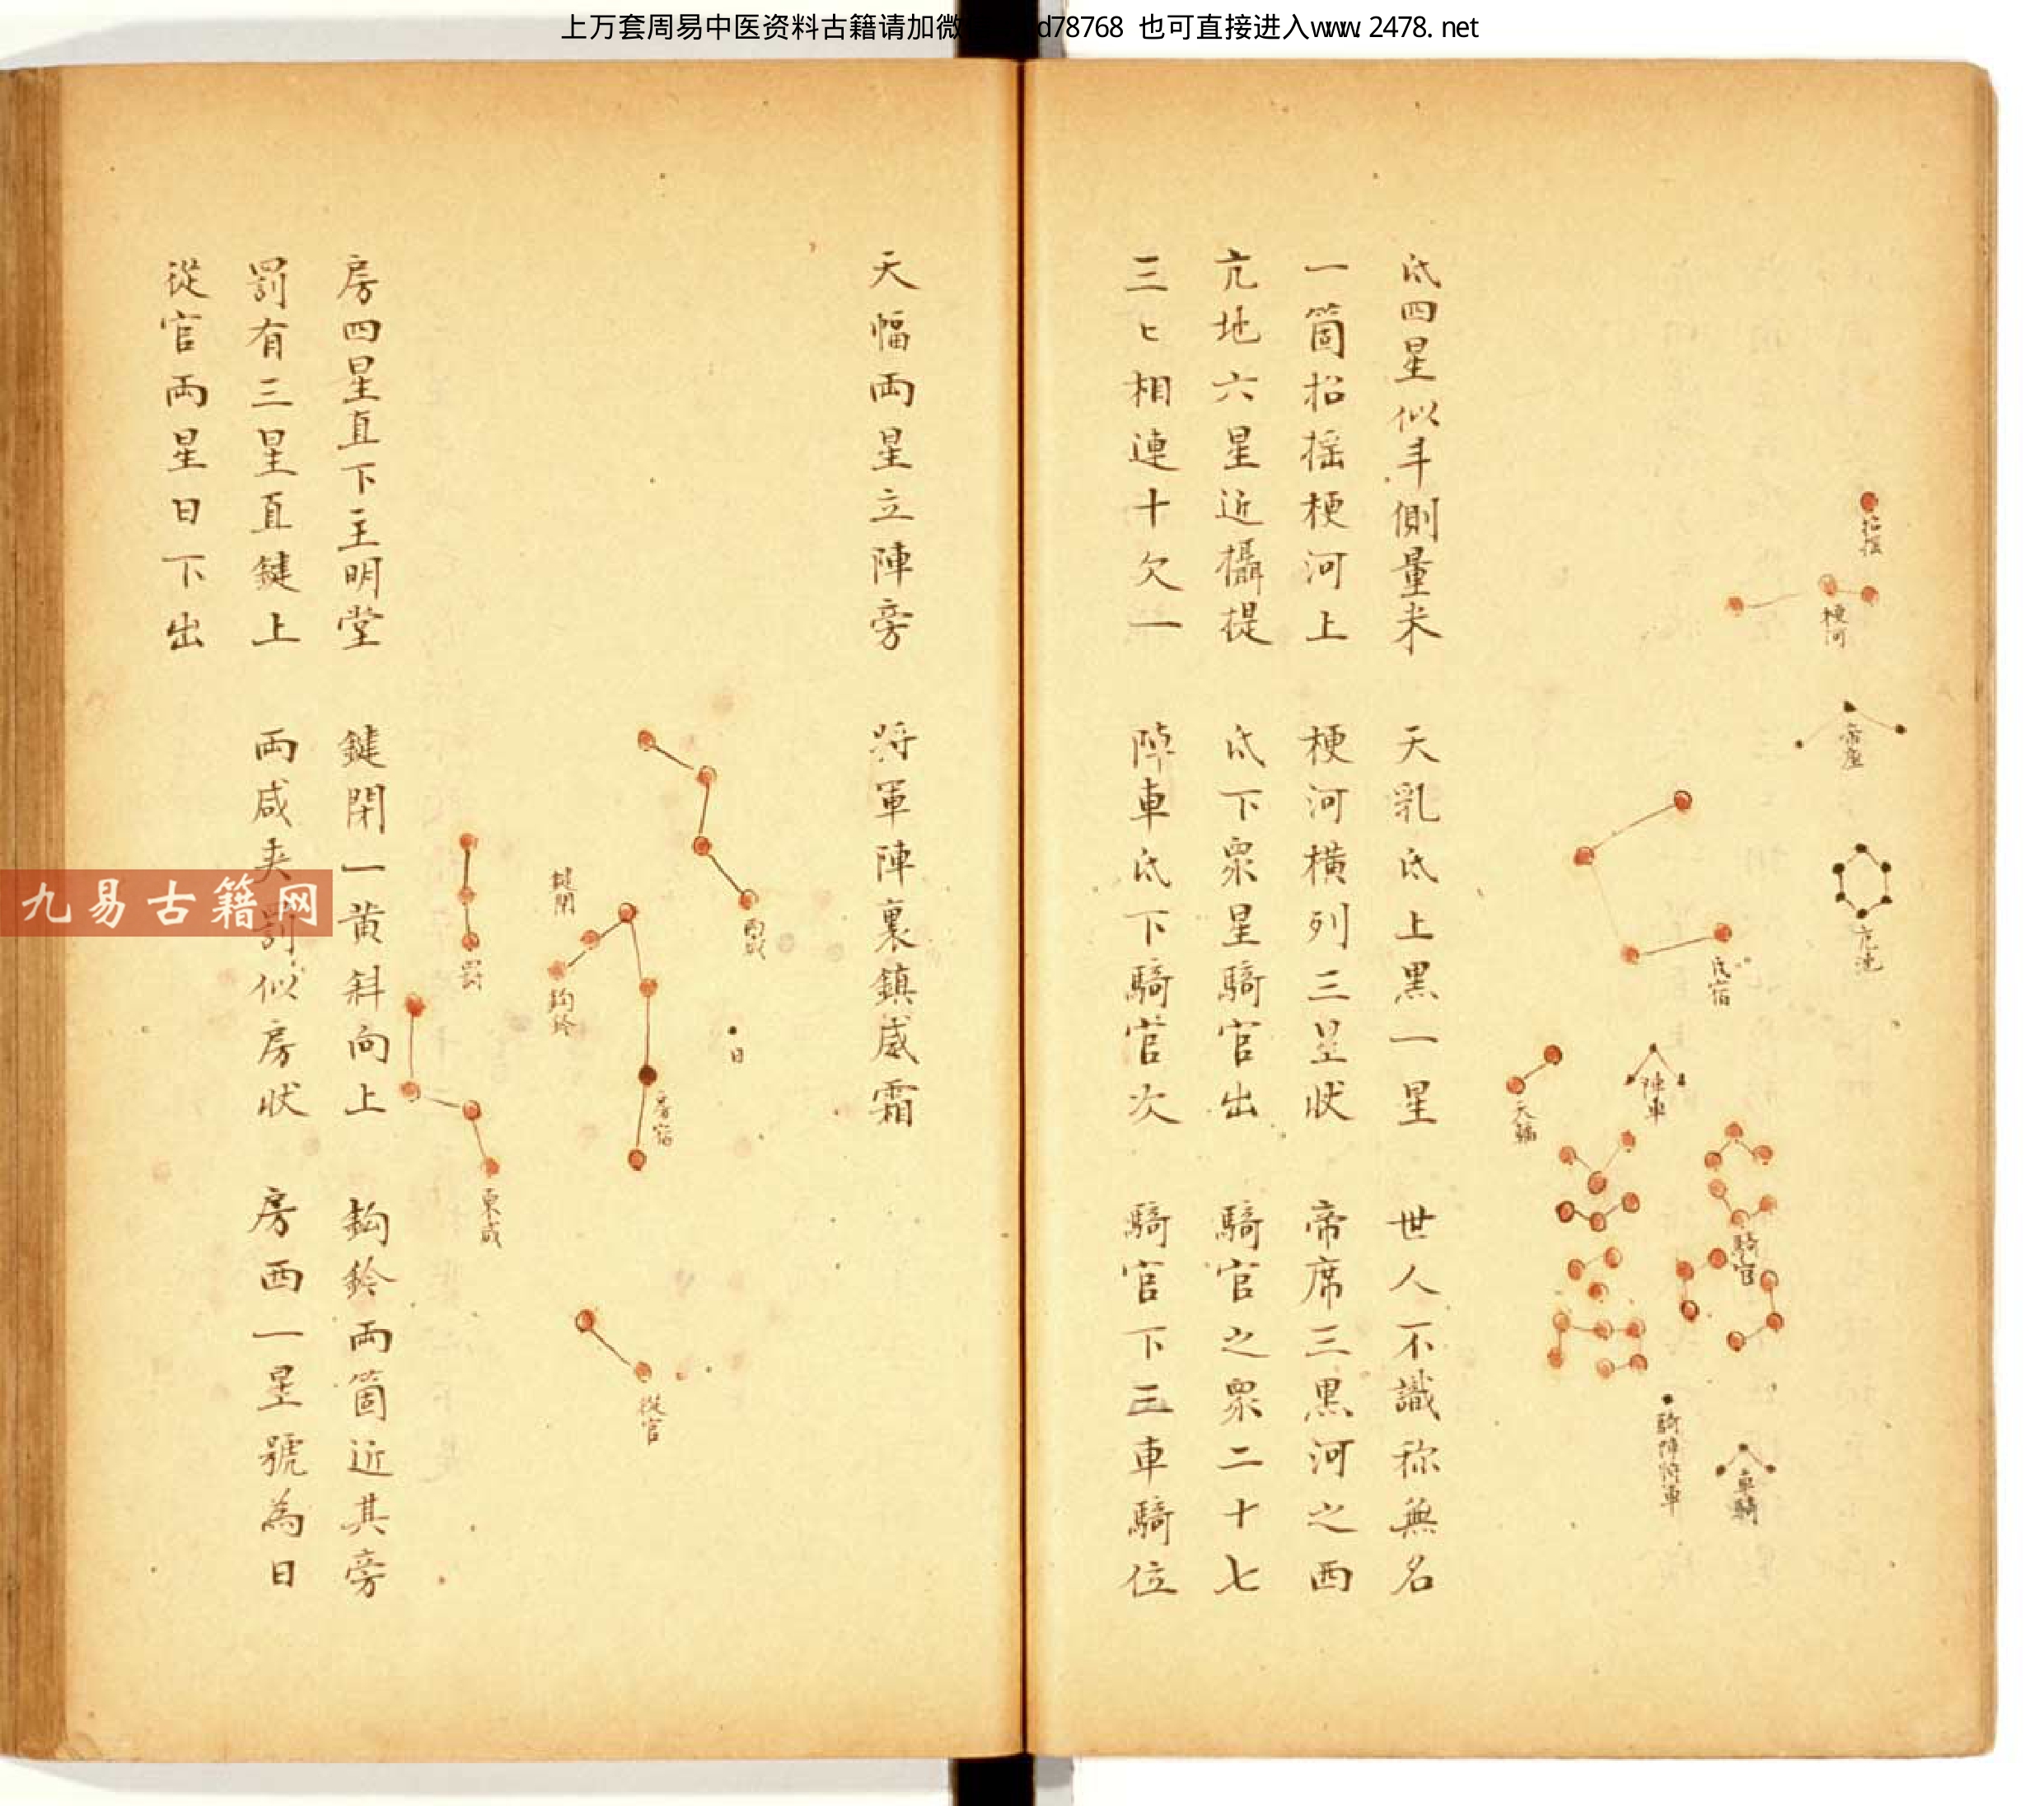 上万套周易中医资料古籍请加微 d78768 也可直接进入www.2478.net
招摇
梗河
帝座
亢池
氐宿
陣車
天輻
騎官
騎陣將軍
車騎
氐四星似斗側量米 天乳氐上黑一星 世人不識称無名
一箇招摇梗河上 梗河横列三星状 帝席三黒河之西
亢地六星近攝提 氐下衆星騎官出 騎官之衆二十七
三匕相連十欠一 陣車氐下騎官次 騎官下三車騎位
天幅両星立陣旁 将軍陣裏鎮威霜
西咸
鍵閉
鉤鈴
罰
日
房宿
東咸
從官
房四星直下主明堂 鍵閉一黄斜向上 鉤鈴両箇近其旁
罰有三星直鍵上 両咸夹罰似房状 房西一星號為日
從官両星日下出
九易古籍网